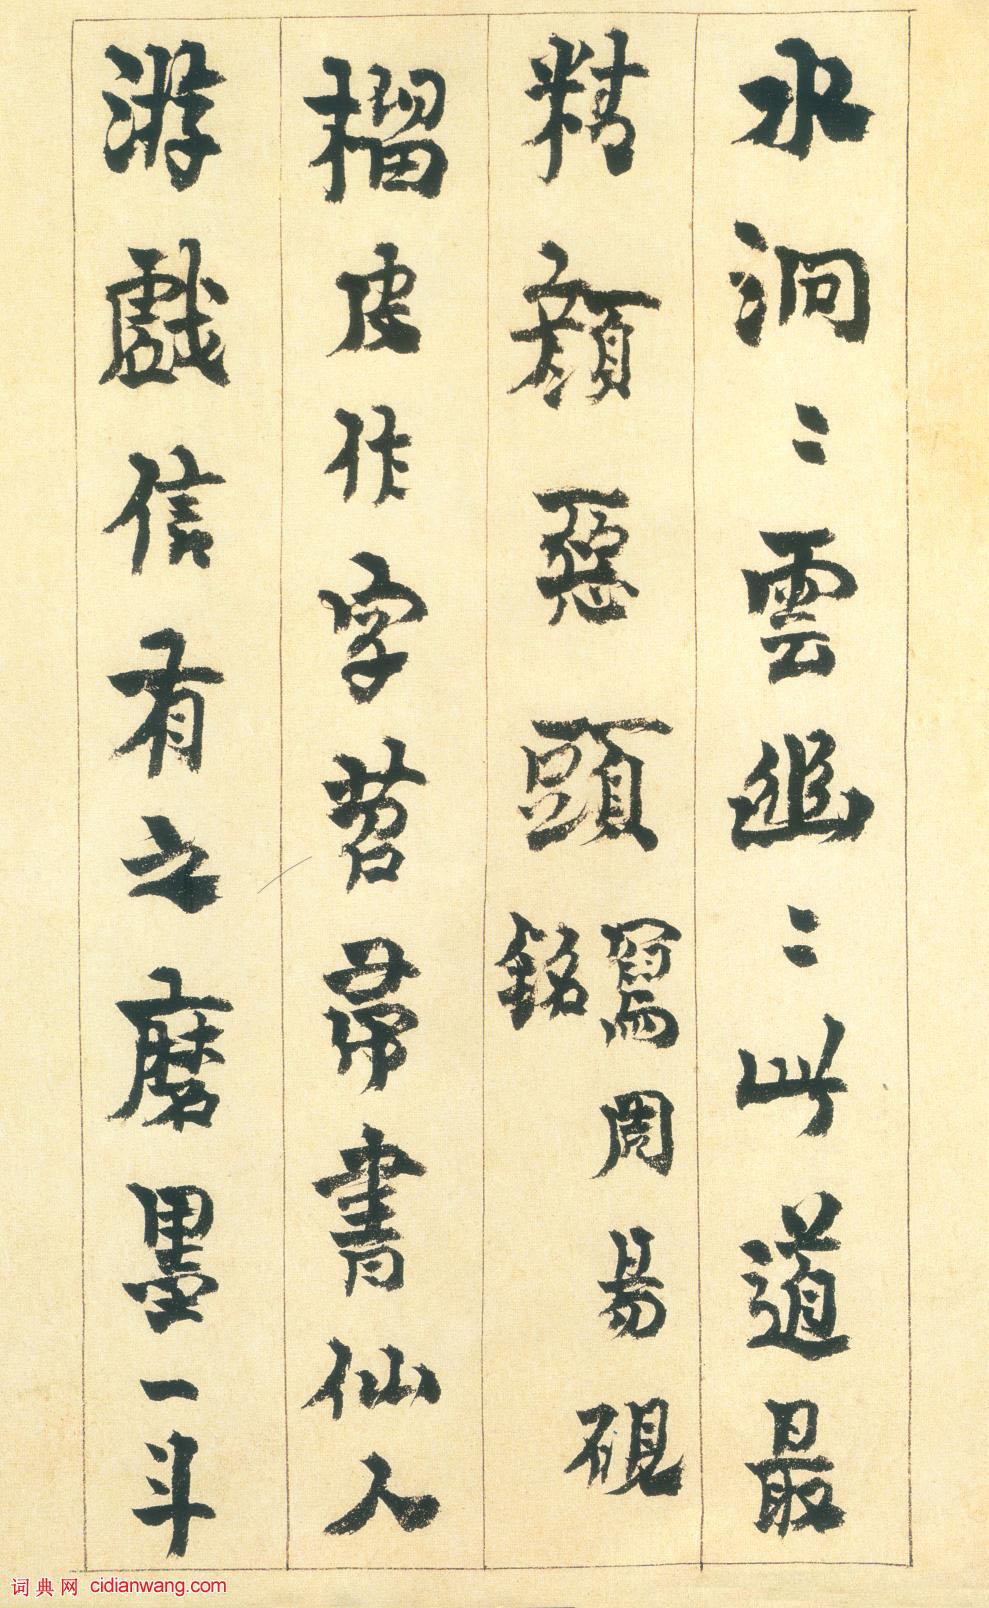 水洞〻雲幽〻此道最
精顏惡頭寫周易硯
銘
榴皮作字苕帚書仙人
游戲信有之磨墨一斗
词典网 cidianwang.com